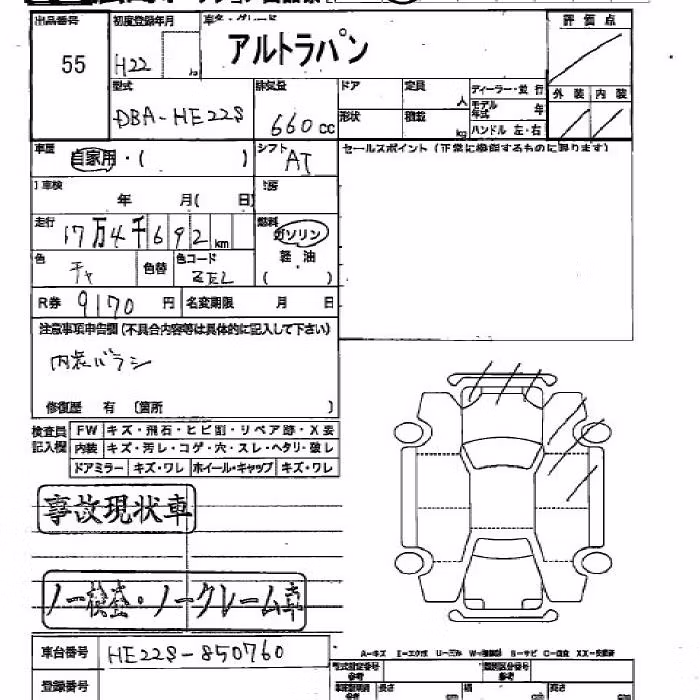 出品番号 初度登録年月 車名・グレード 評価点
55 H22 アルトラパン
型式 排気量 ドア 定員 ディーラー・並行 外装 内装
DBA-HE22S 660cc 人 モデル年式 年
形状 積載 kg ハンドル 左・右
車歴 自家用・( ) シフト AT セールスポイント(正常に機能するものに限ります)
車検 年 月( 日)
走行 17万4千692km 燃料 ガソリン
軽油
色 チャ 色替 色コード ZEL ( )
R券 9170円 名変期限 月 日
注意事項申告欄(不具合内容等は具体的に記入して下さい)
内装バラシ
修復歴 有 〔箇所 〕
検査員 FW キズ・飛石・ヒビ割・リペア跡・X要
記入欄 内装 キズ・汚レ・コゲ・穴・スレ・ヘタリ・破レ
ドアミラー キズ・ワレ ホイール・キャップ キズ・ワレ
事故現状車
ノー検査・ノークレーム車
A-キズ E-エクボ
車台番号 HE22S-850760
型式指定番号 類別区分番号
参考 参考
登録番号 長さ 幅 高さ
参考 cm cm cm